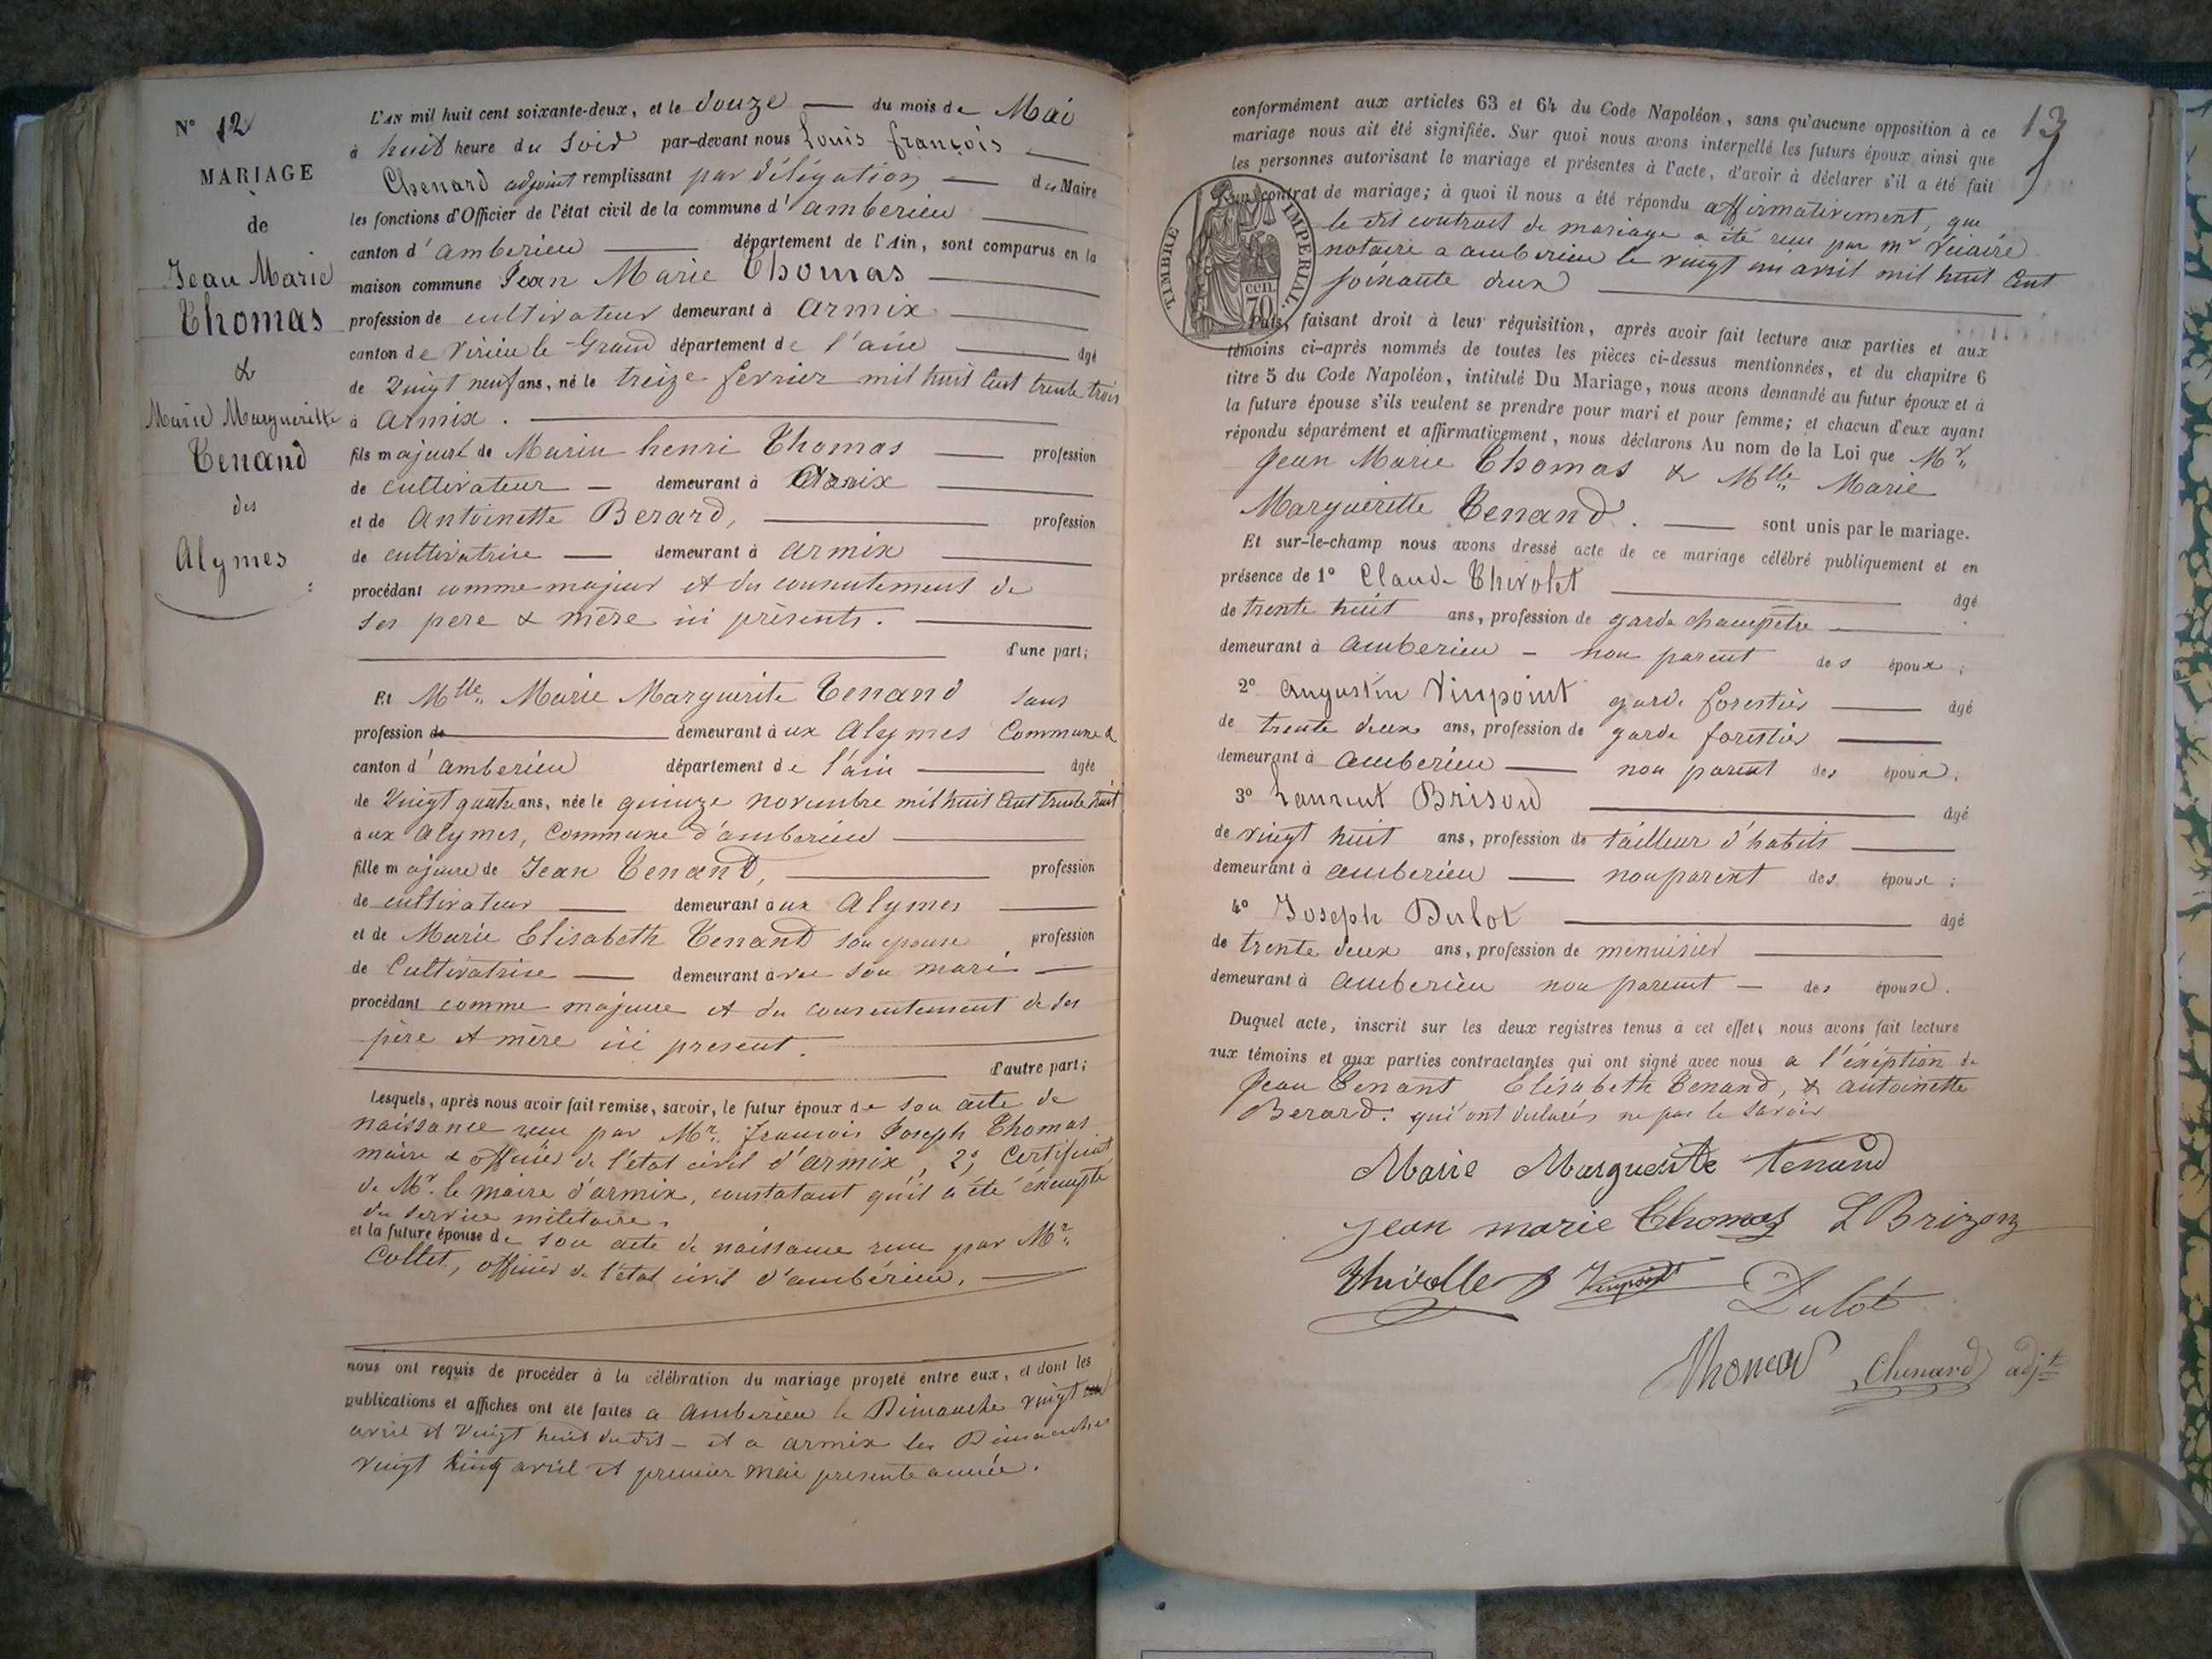 N° 12
MARIAGE
de
Jean Marie
Thomas
&
Marie Marguerite
Tenand
des
Alymes
L'AN mil huit cent soixante-deux, et le douze du mois de Mai
à huit heure du soir par-devant nous Louis françois
Chenard adjoint remplissant par délégation du Maire
les fonctions d'Officier de l'état civil de la commune d'amberieu
canton d'amberieu département de l'Ain, sont comparus en la
maison commune Jean Marie Thomas
profession de cultivateur demeurant à armix
canton de virieu le Grand département de l'ain âgé
de vingt neuf ans, né le treize fevrier mil huit cent trente trois
à armix.
fils majeur de Marin henri Thomas profession
de cultivateur demeurant à armix
et de Antoinette Berard, profession
de cultivatrice demeurant à armix
procédant comme majeur et du consentement de
ses pere & mère ici présents.
d'une part;
Et Mlle Marie Marguerite Tenand sans
profession de demeurant aux Alymes Commune &
canton d'amberieu département de l'ain âgée
de vingt quatre ans, née le quinze novembre mil huit cent trente huit
aux alymes, Commune d'amberieu
fille majeure de Jean Tenand, profession
de cultivateur demeurant aux Alymes
et de Marie Elisabeth Tenand son epouse profession
de Cultivatrice demeurant avec son mari
procédant comme majeure et du consentement de ses
père et mère ici present.
d'autre part;
Lesquels, après nous avoir fait remise, savoir, le futur époux de son acte de
naissance reçu par Mr. françois Joseph Thomas
maire & officier de l'état civil d'armix, 2°, Certificat
de Mr. le maire d'armix, constatant qu'il a été éxempté
du service militaire.
et la future épouse de son acte de naissance reçu par Mr.
Collet, officier de l'état civil d'ambérieu.
nous ont requis de procéder à la célébration du mariage projeté entre eux, et dont les
publications et affiches ont été faites a amberieu le Dimanche vingt
avril et vingt huit dudit - et a armix les Dimanches
vingt cinq avril et premier mai presente année.
13
conformément aux articles 63 et 64 du Code Napoléon, sans qu'aucune opposition à ce
mariage nous ait été signifiée. Sur quoi nous avons interpellé les futurs époux ainsi que
les personnes autorisant le mariage et présentes à l'acte, d'avoir à déclarer s'il a été fait
un contrat de mariage; à quoi il nous a été répondu affirmativement, que
le dit contrat de mariage a été reçu par mr
notaire a amberieu le vingt un avril mil huit cent
soixante deux
TIMBRE IMPERIAL.
70 cen.
Puis, faisant droit à leur réquisition, après avoir fait lecture aux parties et aux
témoins ci-après nommés de toutes les pièces ci-dessus mentionnées, et du chapitre 6
titre 5 du Code Napoléon, intitulé Du Mariage, nous avons demandé au futur époux et à
la future épouse s'ils veulent se prendre pour mari et pour femme; et chacun d'eux ayant
répondu séparément et affirmativement, nous déclarons Au nom de la Loi que Mr.
Jean Marie Thomas & Mlle Marie
Marguerite Tenand. sont unis par le mariage.
Et sur-le-champ nous avons dressé acte de ce mariage célébré publiquement et en
présence de 1° Claude Thivolet âgé
de trente huit ans, profession de garde champêtre
demeurant à amberieu - non parent des époux;
2° augustin Vinpoint garde forestier âgé
de trente deux ans, profession de garde forestier
demeurant à amberieu non parent des époux.
3° Laurent Brison âgé
de vingt huit ans, profession de tailleur d'habits
demeurant à amberieu non parent des époux;
4° Joseph Dulot âgé
de trente deux ans, profession de menuisier
demeurant à amberieu non parent des époux.
Duquel acte, inscrit sur les deux registres tenus à cet effet, nous avons fait lecture
aux témoins et aux parties contractantes qui ont signé avec nous a l'exéption de
Jean Tenant Elisabeth Tenand, & antoinette
Berard. qui ont declarés ne pas le savoir
Marie Marguerite Tenand
jean marie Thomas L Brizon
Thivolle Vinpoint Dulot
Thomas Chenard adjt